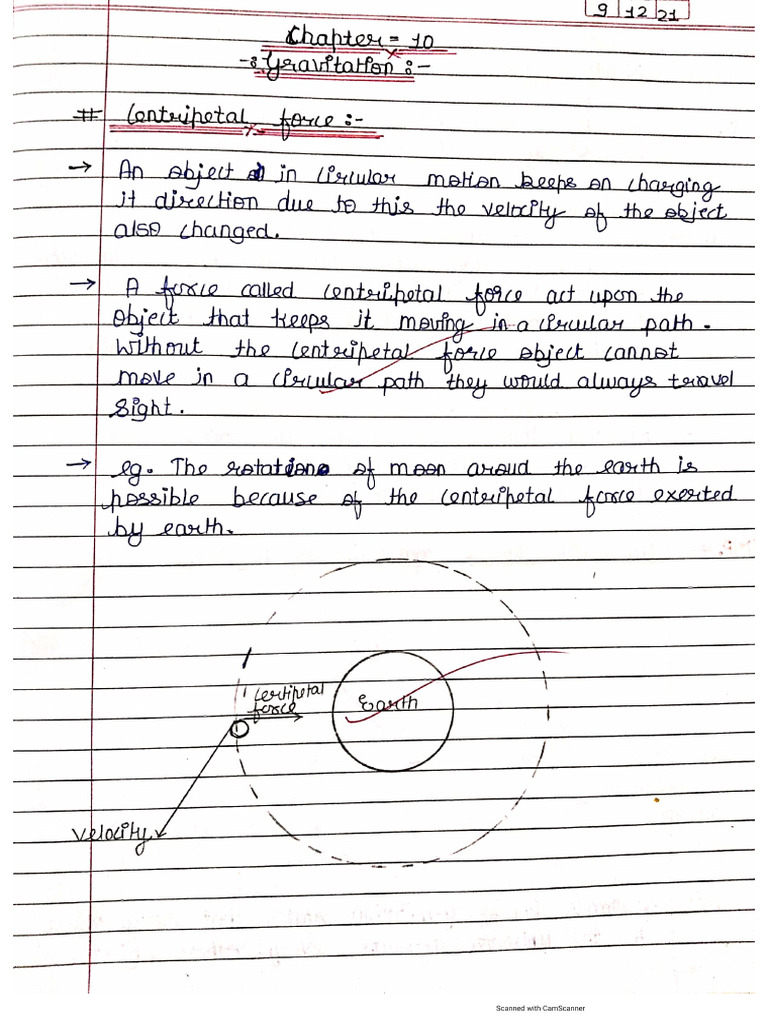 9 12 21
Chapter = 10
-: Gravitation :-
# Centripetal force :-
→ An object in circular motion keeps on charging
it direction due to this the velocity of the object
also changed.
→ A force called centripetal force act upon the
object that keeps it moving in a circular path.
Without the centripetal force object cannot
move in a circular path they would always travel
Sight.
→ eg. The rotation of moon aroud the earth is
possible because of the centripetal force exerted
by earth.
Certipetal
force
Earth
Velocity
Scanned with CamScanner